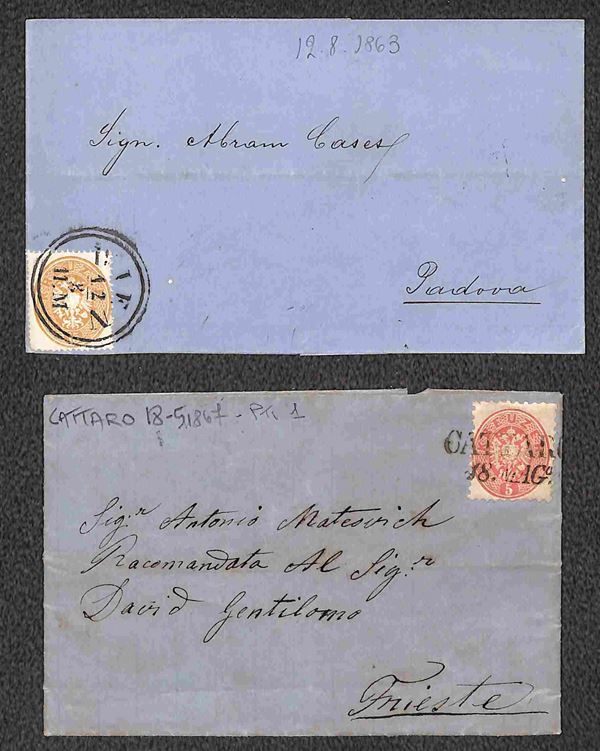 12.8.1863
Sign. Abram Cases
Padova
12
8
11.M
CATTARO 18-5, 1867 - Pti 1
Sig.r Antonio Mateovich
Racomandata Al Sig.r
David Gentilomo
Trieste
5
18. MAGo.